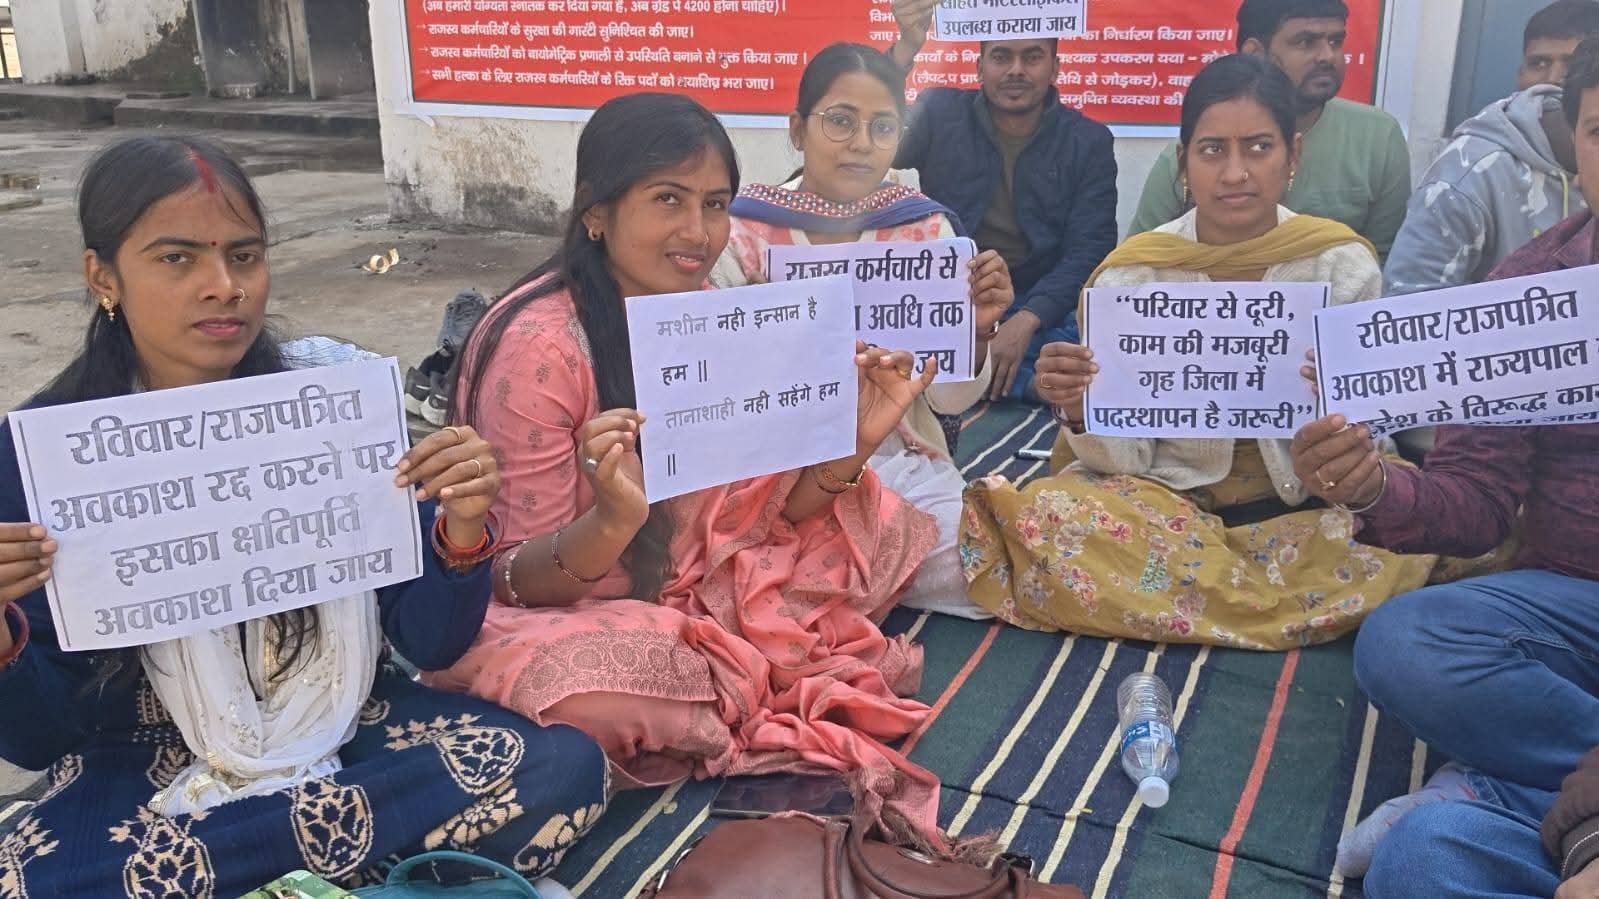 (अब हमारी योग्यता स्नातक कर दिया गया है, अब ग्रेड पे 4200 होना चाहिए)
→ राजस्व कर्मचारियों के सुरक्षा की गारंटी सुनिश्चित की जाए।
→ राजस्व कर्मचारियों को बायोमेट्रिक प्रणाली से उपस्थिति बनाने से मुक्त किया जाए ।
→ सभी हल्का के लिए राजस्व कर्मचारियों के रिक्त पदों को
भरा जाए।
विभा
जाए
का निर्धारण किया जाए।
कार्यों के
उपकरण यया –
(लैपटॉप
तिथि से जोड़कर),
समुचित व्यवस्था की
उपलब्ध कराया जाय
रविवार/राजपत्रित
अवकाश रद्द करने पर
इसका क्षतिपूर्ति
अवकाश दिया जाय
मशीन नही इन्सान है
हम ||
तानाशाही नही सहेंगे हम
||
राजस्व कर्मचारी से
अवधि तक
जाय
“परिवार से दूरी,
काम की मजबूरी
गृह जिला में
पदस्थापन है जरूरी”
रविवार/राजपत्रित
अवकाश में राज्यपाल
के विरूद्ध